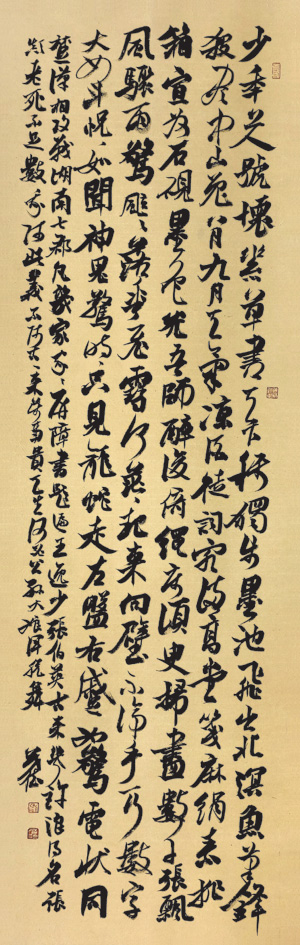 少年上人號懷素草書天下稱獨步墨池飛出北溟魚筆鋒
殺盡中山兔八月九月天氣涼酒徒詞客滿高堂箋麻絹素排
箱宣州石硯墨色光吾師醉後倚繩床須臾掃盡數千張飄
風驟雨驚颯々落花飛雪何茫々起來向壁不停手一行數字
大如斗怳々如聞神鬼驚時々只見龍蛇走左盤右蹙如驚電狀同
楚漢相攻戰湖南七郡凡幾家家々屏障書題遍王逸少張伯英古來幾許浪得名張
顛老死不足數我師此義不師古古來萬事貴天生何必公孫大娘渾脫舞